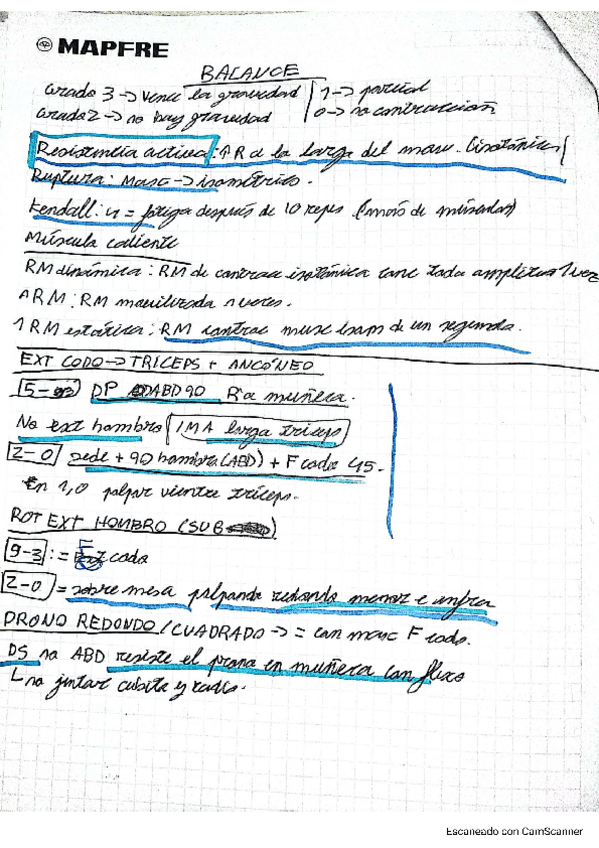 MAPFRE
BALANCE
Grado 3 -> Vence la gravedad | 1 -> parcial
Grado 2 -> no hay gravedad | 0 -> no contracción
Resistencia activa: ↑R a lo largo del mov. (isotónico)
Ruptura: Masc -> isométrico.
Kendall: 4 = fatiga después de 10 reps.
Músculo caliente
RM dinámica: RM de contrac isotónica toda 1 vez
RM: RM movilizada n veces.
1 RM estática: RM contrac musc isom de un segundo.
EXT CODO -> TRICEPS + ANCÓNEO
5- DP ABD90 R a muñeca.
No ext hombro | IMA larga triceps
2-0 sede + 90 hombro (ABD) + F codo 45.
En 1,0 palpar vientre triceps.
ROT EXT HOMBRO (SUB
-3: = F codo
2-0 = sobre mesa palpando redondo menor e infra
PRONO REDONDO/CUADRADO -> = con F codo.
DS no ABD resiste el prono en muñeca con flexo
no juntar cubito y radio.
Escaneado con CamScanner